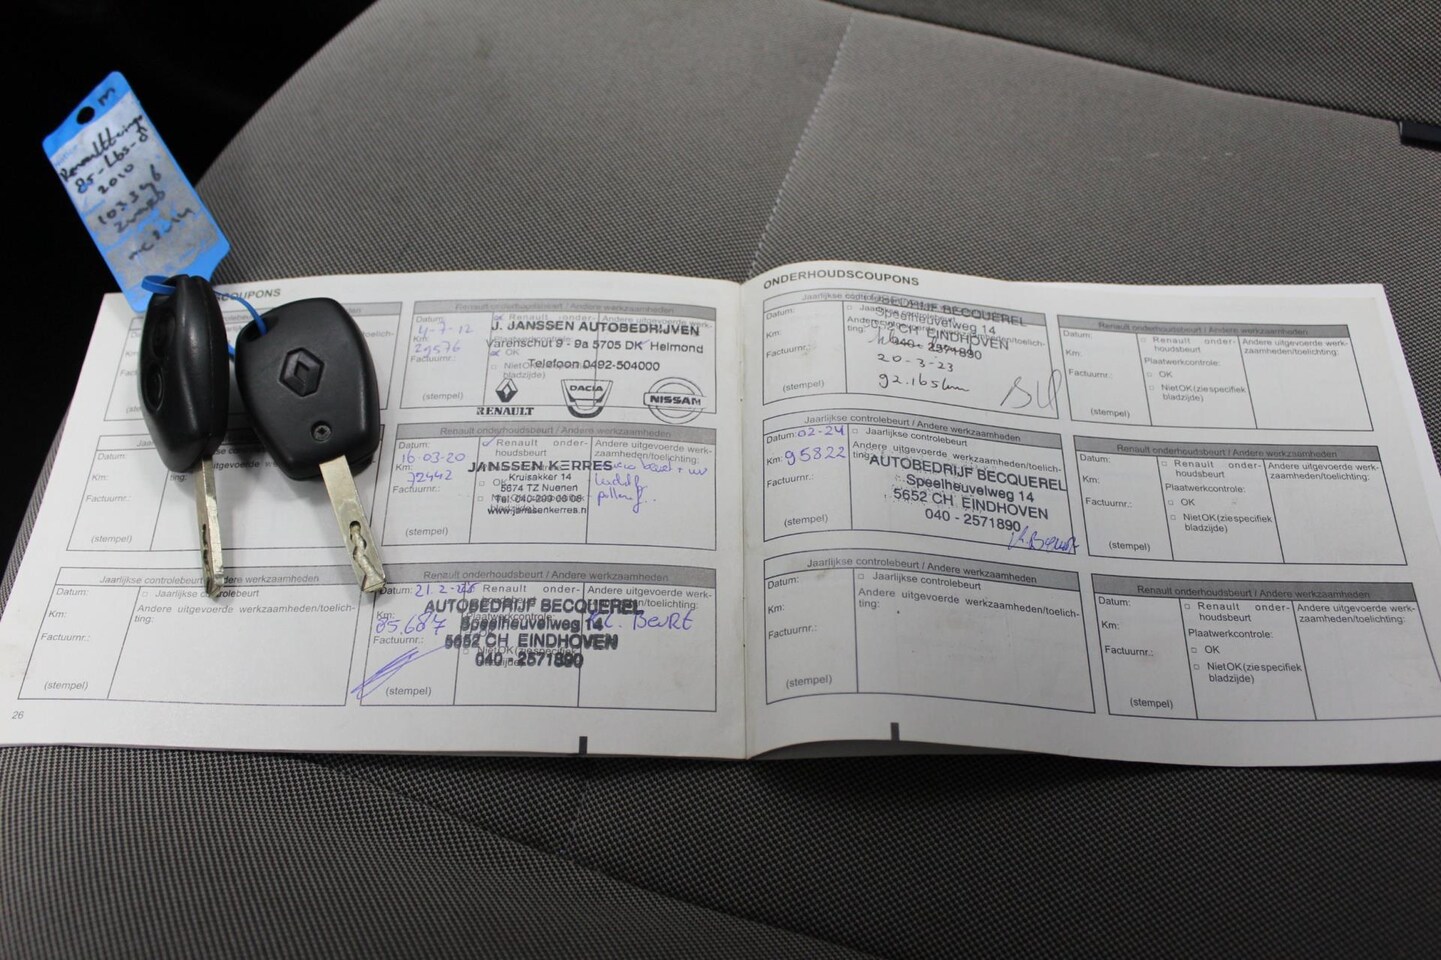 Renault twingo
85-LBS-8
2010
103346
zwart
SCOUPONS
Renault onderhoudsbeurt / Andere werkzaamheden
Datum:
4-7-12
Renault onder-
Andere uitgevoerde werk-
Km:
29576
J. JANSSEN AUTOBEDRIJVEN
Varenschut 9 - 9a 5705 DK Helmond
Factuurnr.:
OK
Telefoon 0492-504000
(stempel)
bladzijde)
RENAULT
DACIA
NISSAN
Renault onderhoudsbeurt / Andere werkzaamheden
Datum:
16-03-20
Renault onder-
houdsbeurt
Andere uitgevoerde werk-
zaamheden/toelichting:
Km:
72442
JANSSEN KERRES
Kruisakker 14
5674 TZ Nuenen
Factuurnr.:
Tel. 040-290 06 08
www.janssenkerres.n
(stempel)
Jaarlijkse controlebeurt / Andere werkzaamheden
Datum:
Jaarlijkse controlebeurt
Km:
Andere uitgevoerde werkzaamheden/toelich-
ting:
Factuurnr.:
(stempel)
Renault onderhoudsbeurt / Andere werkzaamheden
Datum:
Renault onder-
Andere uitgevoerde werk-
zaamheden/toelichting:
AUTOBEDRIJF BECQUEREL
Km:
Speelheuvelweg 14
Factuurnr.:
5652 CH EINDHOVEN
040 - 2571890
(stempel)
26
ONDERHOUDSCOUPONS
Datum:
Km:
Factuurnr.:
BEDRIJF BECQUEREL
Speelheuvelweg 14
5652 CH EINDHOVEN
040 - 2571890
20-3-23
92.165km
(stempel)
Renault onderhoudsbeurt / Andere werkzaamheden
Datum:
Renault onder-
houdsbeurt
Andere uitgevoerde werk-
zaamheden/toelichting:
Km:
Plaatwerkcontrole:
Factuurnr.:
OK
NietOK(ziespecifiek
bladzijde)
(stempel)
Jaarlijkse controlebeurt / Andere werkzaamheden
Datum:
02-24
Jaarlijkse controlebeurt
Km:
95822
Andere uitgevoerde werkzaamheden/toelich-
ting:
AUTOBEDRIJF BECQUEREL
Factuurnr.:
Speelheuvelweg 14
5652 CH EINDHOVEN
040 - 2571890
(stempel)
Renault onderhoudsbeurt / Andere werkzaamheden
Datum:
Renault onder-
houdsbeurt
Andere uitgevoerde werk-
zaamheden/toelichting:
Km:
Plaatwerkcontrole:
Factuurnr.:
OK
NietOK(ziespecifiek
bladzijde)
(stempel)
Jaarlijkse controlebeurt / Andere werkzaamheden
Datum:
Jaarlijkse controlebeurt
Km:
Andere uitgevoerde werkzaamheden/toelich-
ting:
Factuurnr.:
(stempel)
Renault onderhoudsbeurt / Andere werkzaamheden
Datum:
Renault onder-
houdsbeurt
Andere uitgevoerde werk-
zaamheden/toelichting:
Km:
Plaatwerkcontrole:
Factuurnr.:
OK
NietOK(ziespecifiek
bladzijde)
(stempel)